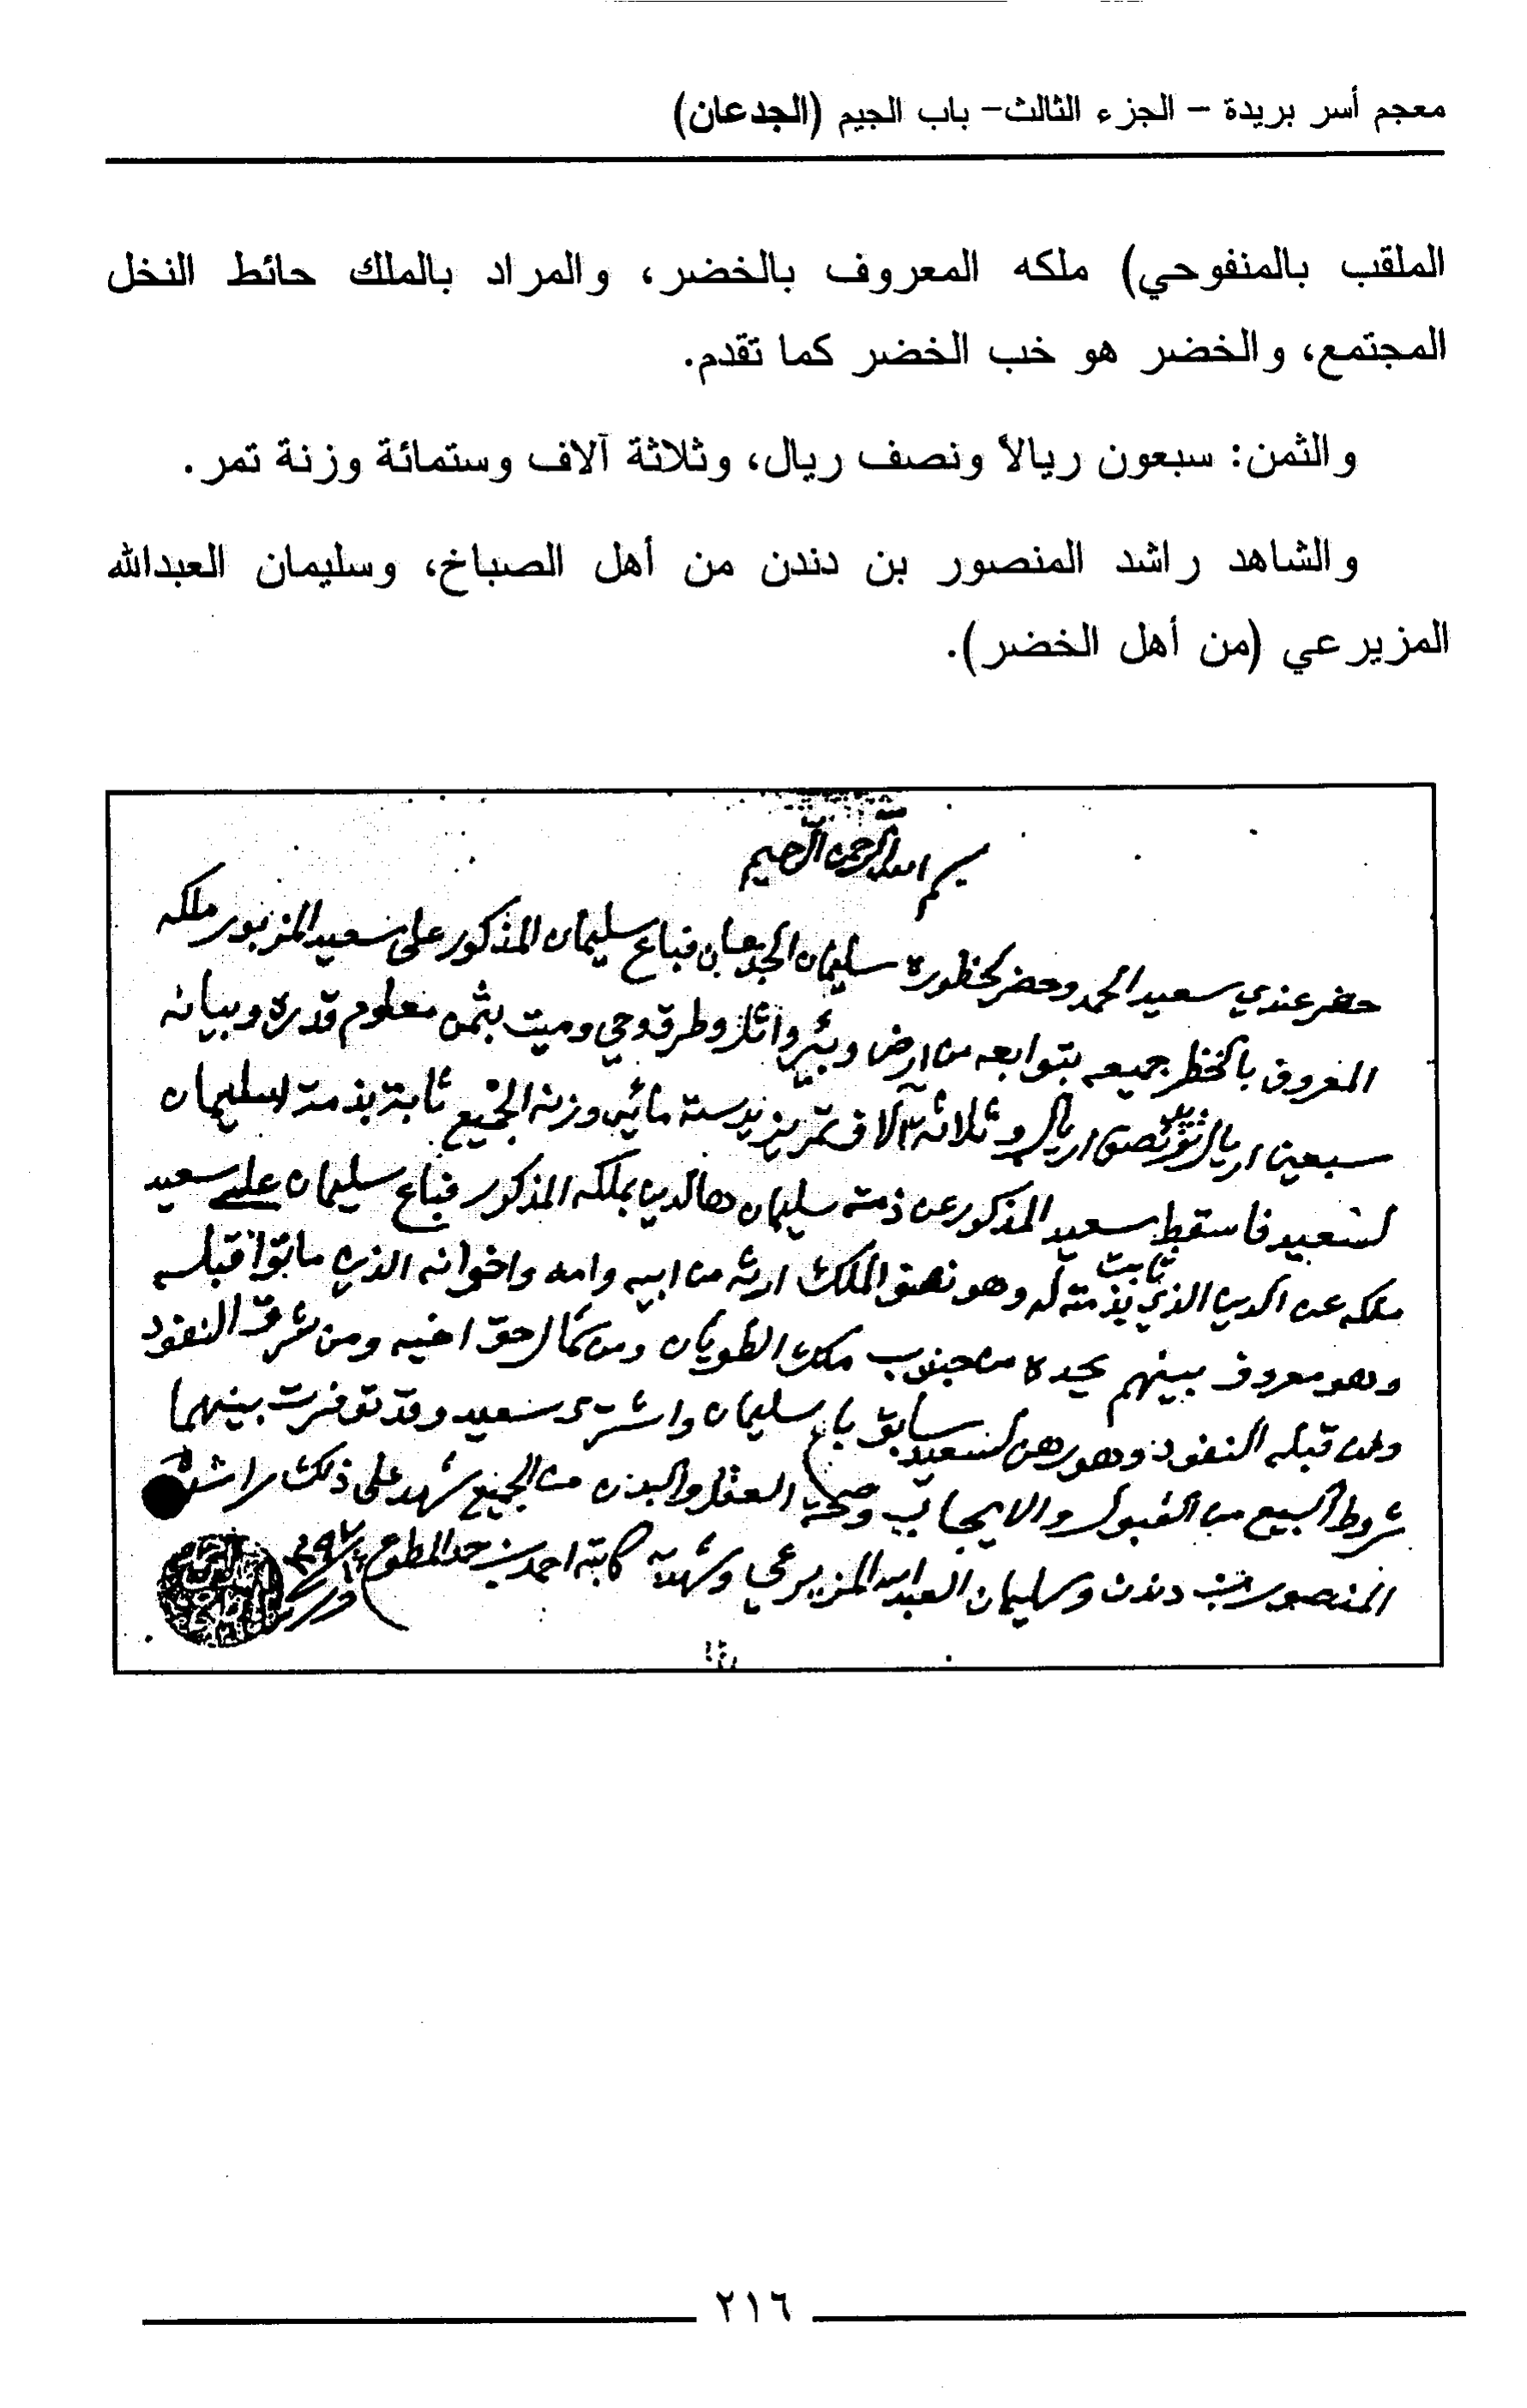 معجم أسر بريدة - الجزء الثالث- باب الجيم (الجدعان)
الملقب بالمنفوحي) ملكه المعروف بالخضر، والمراد بالملك حائط النخل
المجتمع، والخضر هو خب الخضر كما تقدم.
والثمن: سبعون ريالاً ونصف ريال، وثلاثة آلاف وستمائة وزنة تمر.
والشاهد راشد المنصور بن دندن من أهل الصباخ، وسليمان العبدالله
المزيرعي (من أهل الخضر).
بسم الله الرحمن الرحيم
حضر عندي سعيد الحمد وحضر لحظوره سليمان الجدعان فباع سليمان المذكور على سعيد المزبور ملكه
المعروف بالخظر جميعه بتوابعه من ارض وبئر واثل وطرق وحي وميت بثمن معلوم قدره وبيانه
سبعين اريال ونصف اريال وثلاثة آلاف تمر يزيد ستة مائة وزنه الجميع ثابتة بذمة سليمان
لسعيد فاسقط سعيد المذكور عن ذمة سليمان هالدين بملكه المذكور فباع سليمان على سعيد
ملكه عن الدين الذي ثابت بذمته له وهو نصف الملك ارثه من ابيه وامه واخوانه الذين ماتوا قبله
وهو معروف بينهم يحده من جنوب ملك الطويان ومن شمال حق اخيه ومن شرق النفود
ومن قبله النفود وهو رهن لسعيد سابق باع سليمان واشترى سعيد وقد توفرت بينهما
شروط البيع من القبول والايجاب وصحة العقل والبدن من الجميع شهد على ذلك راشد
المنصور بن دندن وسليمان العبدالله المزيرعي وشهد به كاتبه احمد بن حمد المطوع
٢١٦